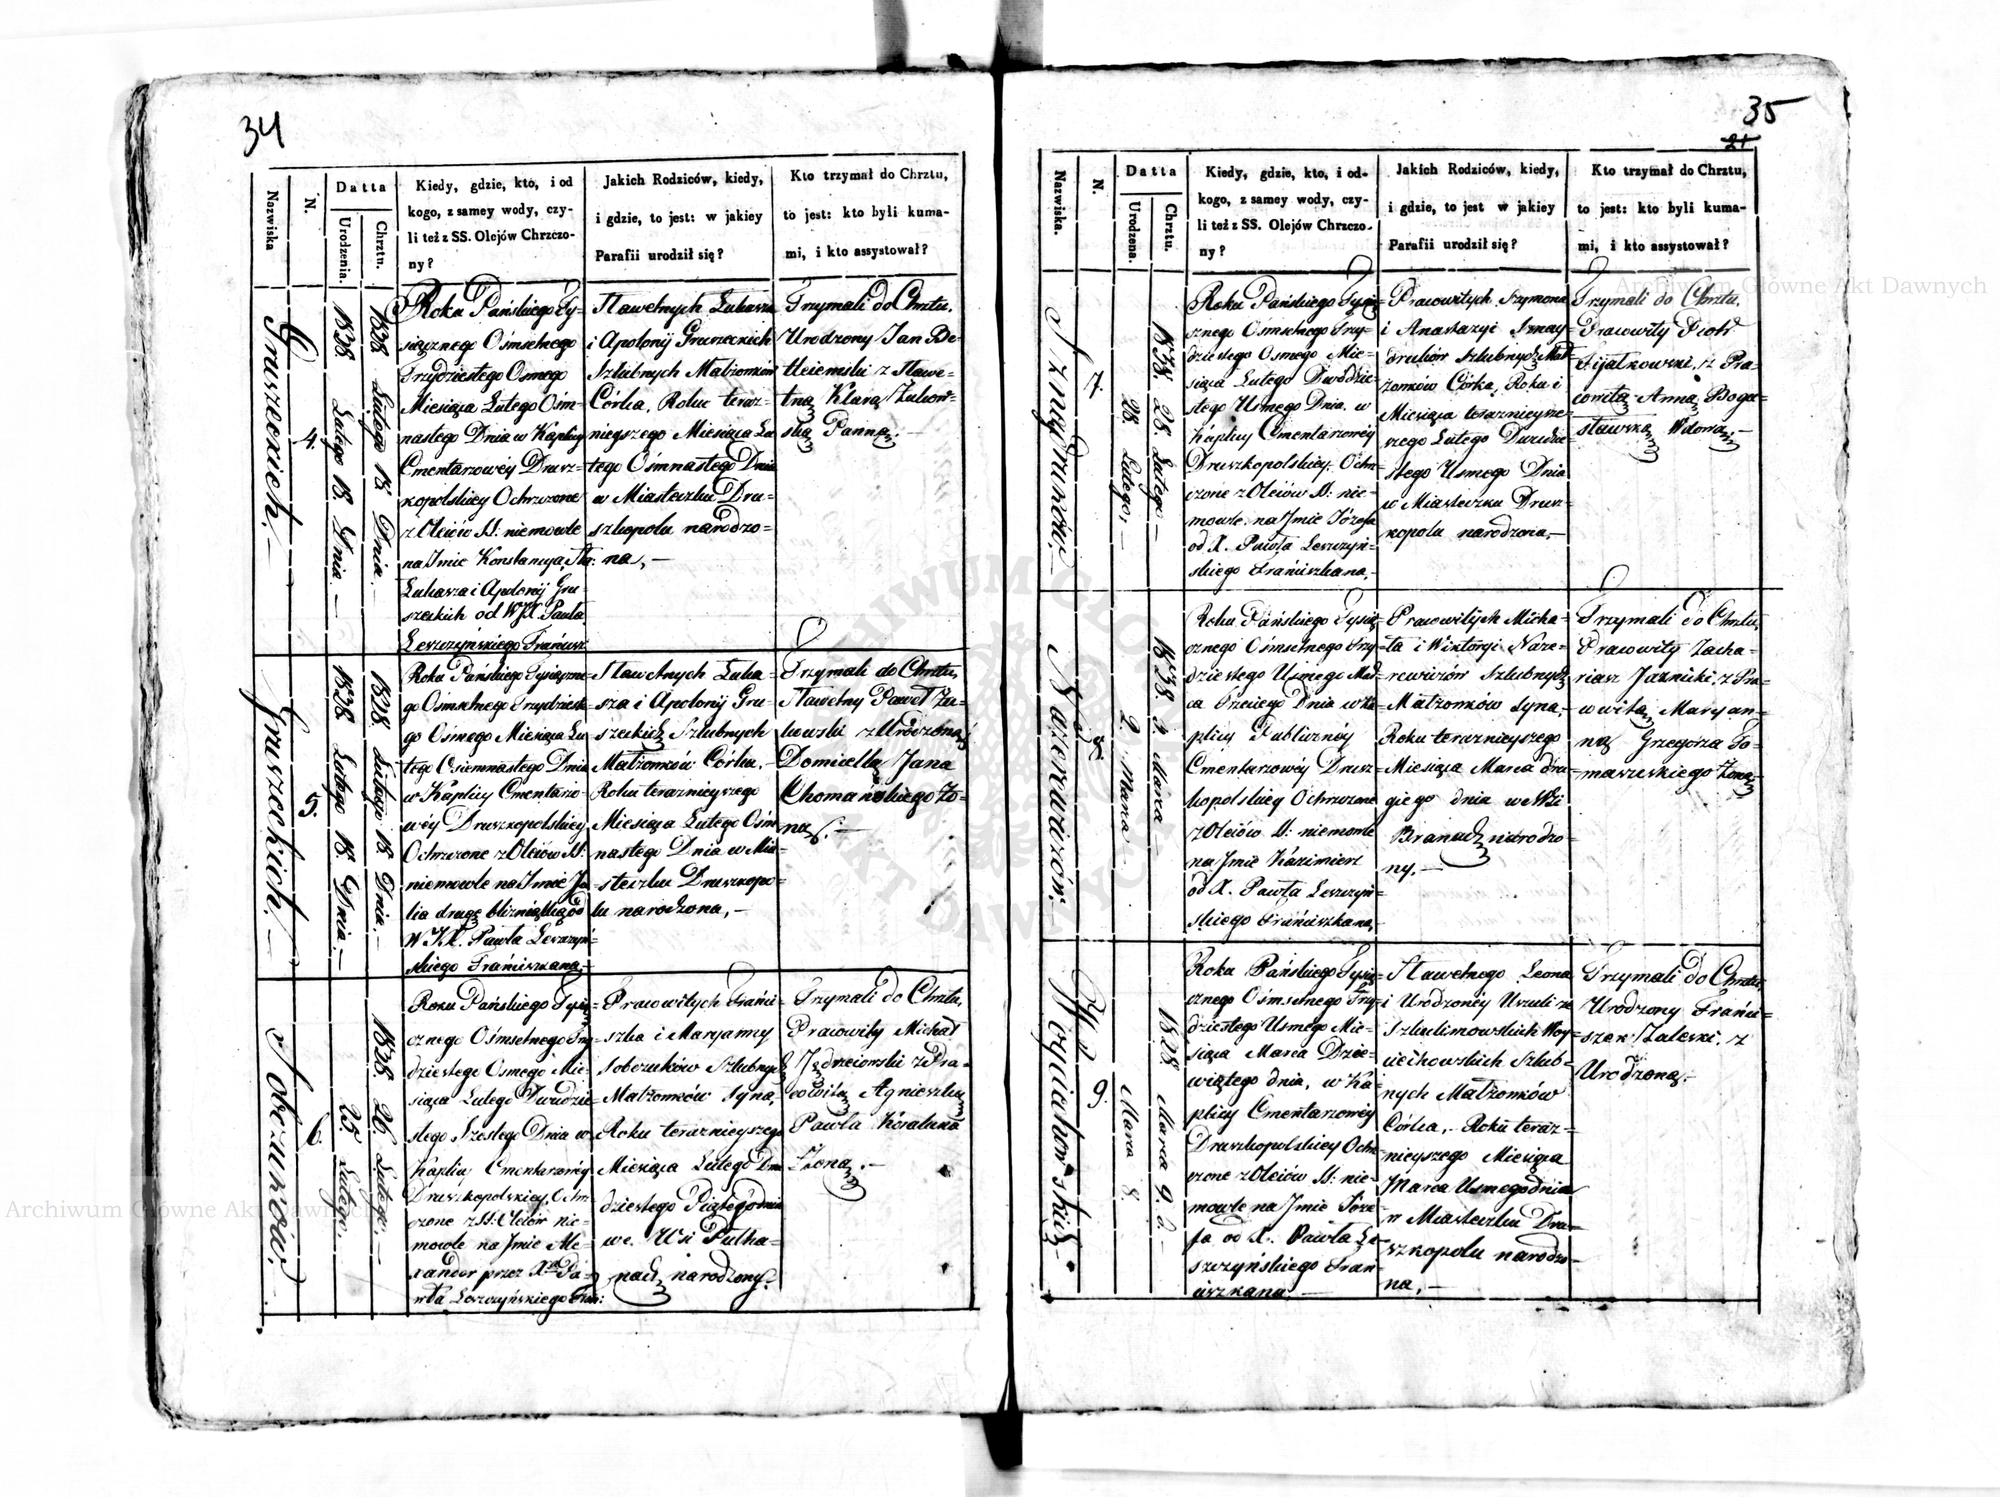 34
Nazwiska
N.
Datta
Urodzenia.
Chrztu.
Kiedy, gdzie, kto, i od
kogo, z samey wody, czy-
li też z SS. Olejów Chrzczo-
ny?
Jakich Rodziców, kiedy,
i gdzie, to jest: w jakiey
Parafii urodził się?
Kto trzymał do Chrztu,
to jest: kto byli kuma-
mi, i kto assystował?
Gruszeckich.—
4.
1838 Lutego 18. Dnia.—
1838 Lutego 18 Dnia.—
Roku Pańskiego Ty-
siącznego Ośmsetnego
Trzydziestego Osmego
Miesiąca Lutego Ośm-
nastego Dnia w Kaplicy
Cmentarzowéy Drusz-
kopolskiey Ochrzczone
z Oleiów SS: niemowle
na Jmie Konstancya,
Łukasza i Apolonij Gru-
szeckich od WJX. Pawła
Leszczyńskiego Francisz:
Sławetnych Łukasza
i Apolonij Gruszeckich
Szlubnych Małżonków
Córka, Roku teraz-
nieyszego Miesiąca Lu-
tego Ośmnastego Dnia
w Miasteczku Dru-
szkopolu narodzo-
na,—
Trzymali do Chrztu,
Urodzony Jan
z Sławe-
tną Klarą Żukow-
ską Panną.—
Gruszeckich.—
5.
1838 Lutego 18. Dnia.—
1838 Lutego 18 Dnia.—
Roku Pańskiego Tysiączne-
go Ośmsetnego Trzydzieste-
go Osmego Miesiąca Lu-
tego Osiemnastego Dnia
w Kaplicy Cmentarzo-
wéy Druszkopolskiey
Ochrzczone z Oleiów SS:
niemowle na Jmie Ju-
lia drugę bliźniątką od
WJX. Pawła Leszczyń-
skiego Franciszkana,—
Sławetnych Łuka-
sza i Apolonij Gru-
szeckich Szlubnych
Małżonków Córka,—
Roku teraznieyszego
Miesiąca Lutego Ośm-
nastego Dnia w Mia-
steczku Druszkopo-
lu narodzona,—
Trzymali do Chrztu,
Sławetny Paweł Żu-
kowski z Urodzoną
Domicellą Jana
Chomańskiego Żo-
ną.—
Sobczuków.—
6.
25. Lutego.
1838. 26. Lutego.—
Roku Pańskiego Tysią-
cznego Ośmsetnego Trzy-
dziestego Osmego Mie-
siąca Lutego Dwudzie-
stego Szostego Dnia w
Kaplicy Cmentarzowéy
Druszkopolskiey Ochrz-
czone z SS: Oleiów nie-
mowle na Jmie Ale-
xander przez Xa Pa-
wła Leszczyńskiego Fran:
Pracowitych Franci-
szka i Maryanny
Sobczuków Szlubnych
Małżonków Syna,
Roku teraznieyszego
Miesiąca Lutego Dwu
dziestego Piątego dnia
we Wsi Pułha-
nach narodzony.
Trzymali do Chrztu,
Pracowity Michał
Jędrzeiowski z Pra-
cowitą Agnieszką
Pawła
Żoną.—
35
21
Nazwiska.
N.
Datta
Urodzena.
Chrztu.
Kiedy, gdzie, kto, i od-
kogo, z samey wody, czy-
li też z SS. Olejów Chrzczo-
ny?
Jakich Rodziców, kiedy,
i gdzie, to jest w jakiey
Parafii urodził się?
Kto trzymał do Chrztu,
to jest: kto byli kuma-
mi, i kto assystował?
Sznaydruków.—
7.
28. Lutego,—
1838. 28. Lutego—
Roku Pańskiego Tysią-
cznego Ośmsetnego Trzy-
dziestego Osmego Mie-
siąca Lutego Dwódzie-
stego Usmego Dnia. w
Kaplicy Cmentarzowéy
Druszkopolskiey, Ochrz-
czone z Oleiów SS: nie-
mowle. na Jmie Józefa
od X. Pawła Leszczyń-
skiego Franciszkana,—
Pracowitych Szymona
i Anastazyi Sznay-
druków Szlubnych Mał-
żonków Córka, Roku i
Miesiąca teraznieysze-
szego Lutego Dwudzie-
stego Usmego Dnia
w Miasteczku Drusz-
kopolu narodzona,—
Trzymali do Chrztu,
Pracowity Piotr
Fijałkowski, z Pra-
cowitą Anną Bogu-
sławską Wdową,—
Nazerewiczów.—
8.
2. Marca
1838 3 Marca—
Roku Pańskiego Tysią-
cznego Ośmsetnego Trzy-
dziestego Usmego Mar-
ca Trzeciego Dnia w Ka-
plicy Publicznéy
Cmentarzowéy Drusz-
kopolskiey Ochrzczone
z Oleiów SS: niemowle
na Jmie Kazimierz
od X. Pawła Leszczyń-
skiego Franciszkana,
Pracowitych Micha-
ła i Wiktoryi Naze-
rewiczów Szlubnych
Małżonków Syna,
Roku teraznieyszego
Miesiąca Marca dru-
giego dnia we Wsi
Branach narodzo-
ny.—
Trzymali do Chrztu,
Pracowity Zacha-
riasz Jaznicki, z Pra-
cowitą Maryan-
ną Grzegorza To-
maszeskiego Żoną,
Woyciechowskich.—
9.
Marca 8.
1838 Marca 9. d.—
Roku Pańskiego Tysią-
cznego Ośmsetnego Trzy-
dziestego Usmego Mie-
siąca Marca Dzie-
wiątego dnia, w Ka-
plicy Cmentarzowéy
Druszkopolskiey Ochrz-
czone z Oleiów SS: nie-
mowle na Jmie Józe-
fa od X. Pawła Le-
szczyńskiego Fran-
ciszkana,—
Sławetnego Leona
i Urodzoney Urzuli ze
Szladimowskich Woy-
ciechowskich Szlub-
nych Małżonków
Córka,— Roku teraz-
nieyszego Miesiąca
Marca Usmego dnia
w Miasteczku Dru-
szkopolu narodzo-
na,—
Trzymali do Chrztu,
Urodzony Franci-
szek Zaleski, z
Urodzoną.—
Archiwum Główne Akt Dawnych
Archiwum Główne Akt Dawnych
ARCHIWUM GŁÓWNE AKT DAWNYCH